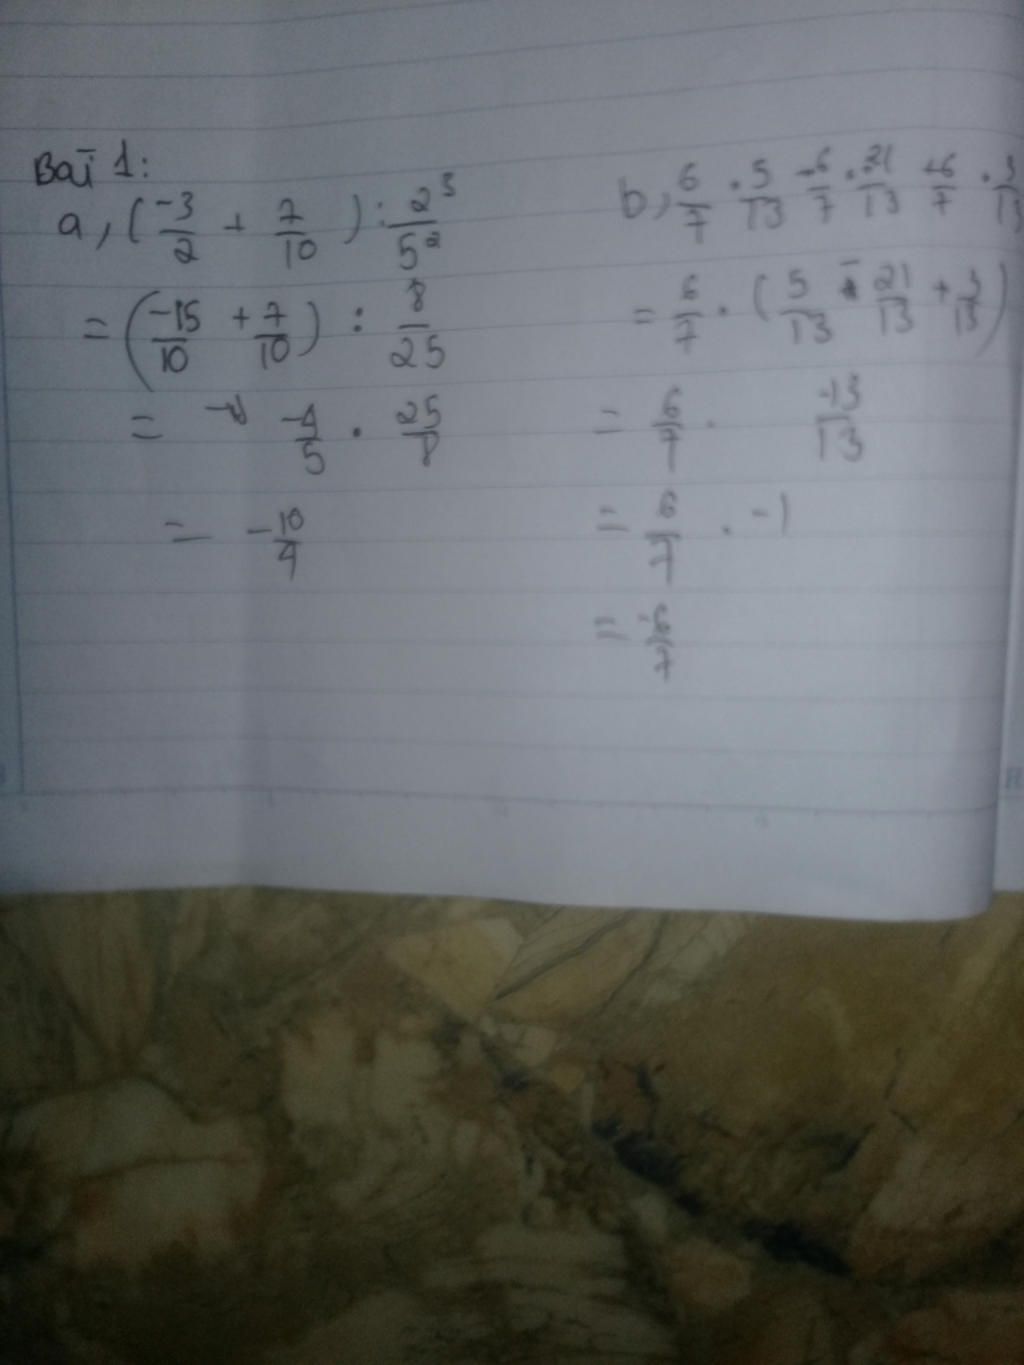 Bài 1:
a, (-3/2 + 7/10) : 2^3/5^2
= (-15/10 + 7/10) : 8/25
= -4/5 . 25/8
= -10/4
b, 6/7 . 5/13 - 6/7 . 21/13 + 6/7 . 3/13
= 6/7 . (5/13 - 21/13 + 3/13)
= 6/7 . -13/13
= 6/7 . -1
= -6/7